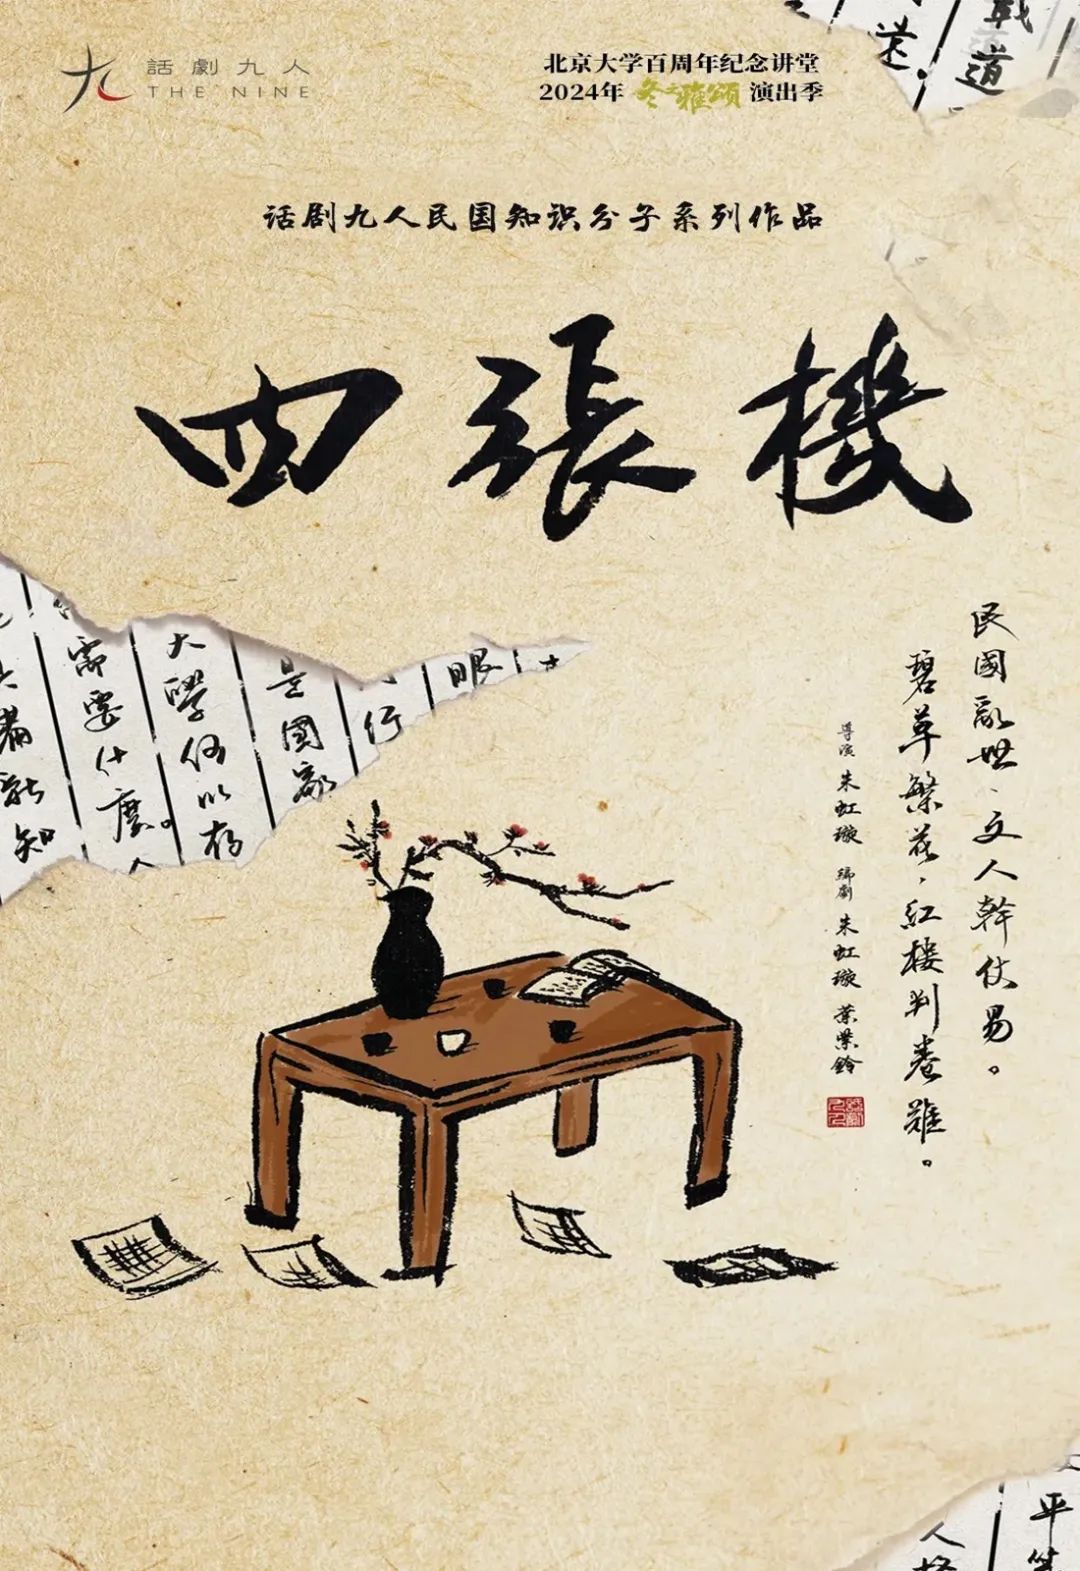 話劇九人
THE NINE
北京大学百周年纪念讲堂
2024年 冬之雅颂 演出季
道
话剧九人民国知识分子系列作品
四張機
民國亂世、文人幹仗易。
碧草繁花，紅樓判卷難。
导演 朱虹璇 编劇 朱虹璇 葉紫鈴
眼
行
是國家
大學何以存
需要什麼。
新知
平等
人格